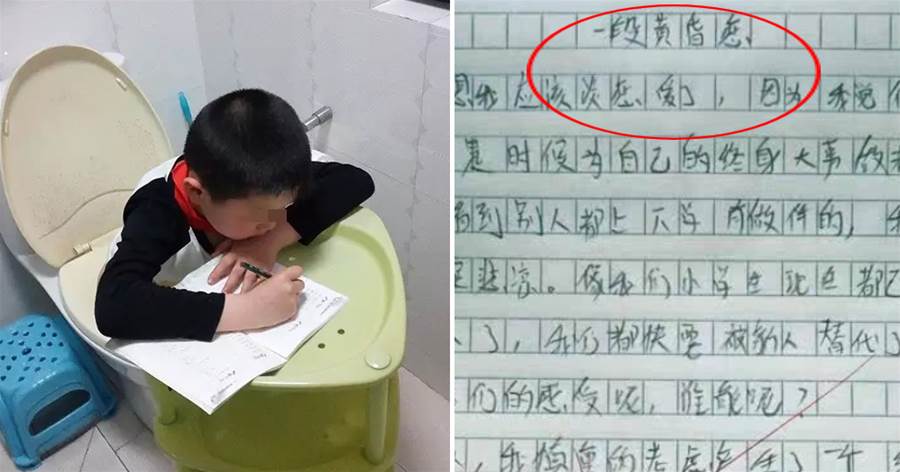 一段黄昏恋
应该谈恋爱了，因为我觉
是时候为自己的终身大事做
到别人都上下学有做伴的，
悲凉。像我们小学生现在都
了，我们都快要被新人替代了
们的感受呢，谁能呢？
，我慎重的考虑